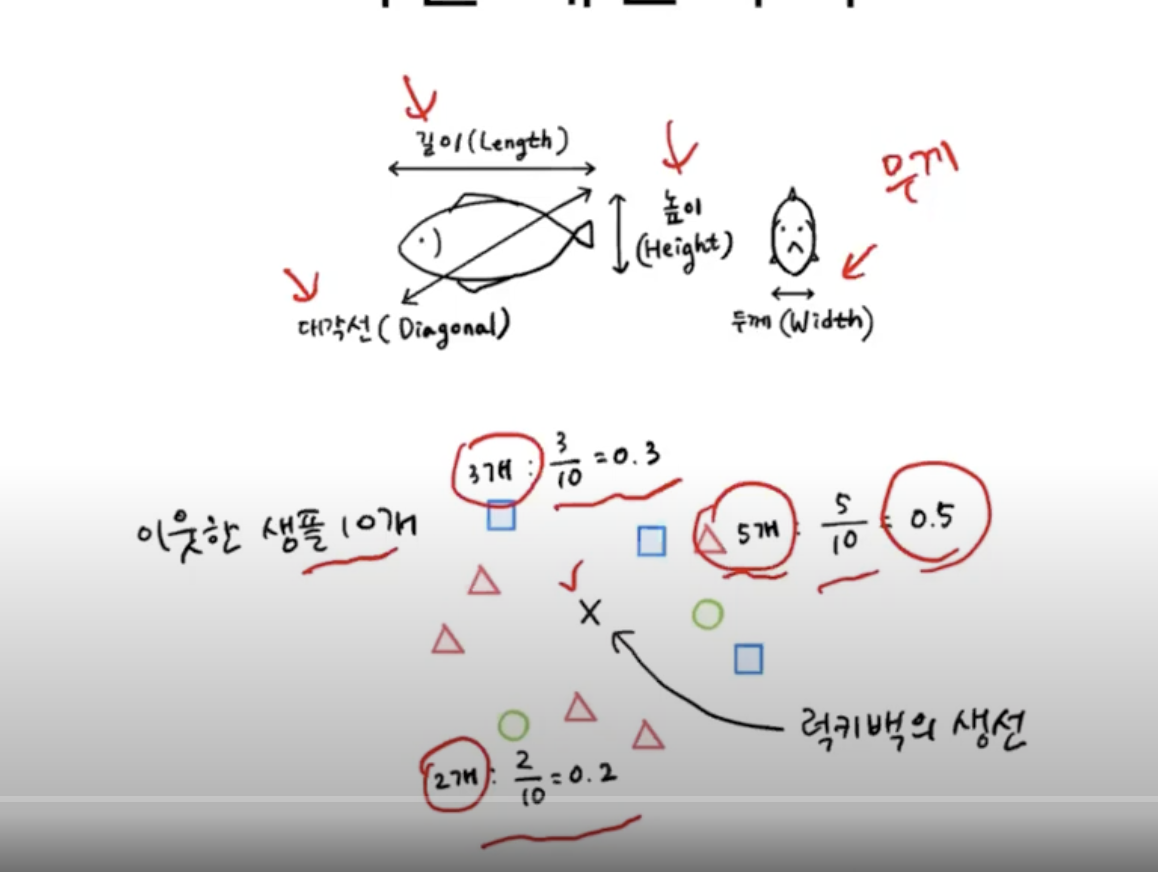 길이(Length)
높이
(Height)
무게
대각선(Diagonal)
두께(Width)
3개: 3/10 = 0.3
이웃한 샘플 10개
5개: 5/10 = 0.5
X
럭키백의 생선
2개: 2/10 = 0.2